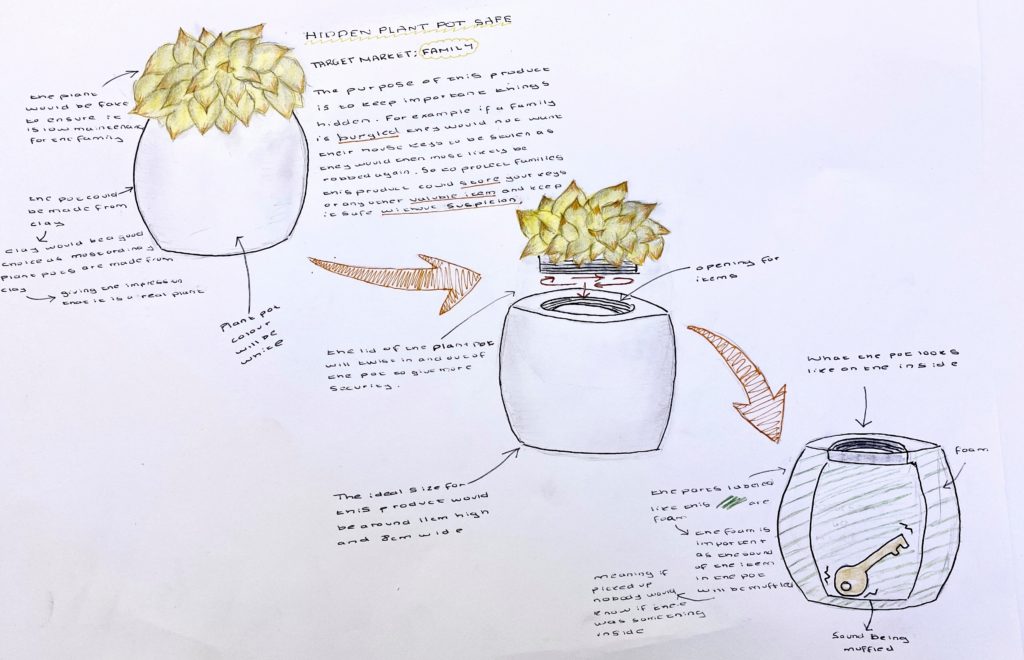 HIDDEN PLANT POT SAFE
TARGET MARKET: FAMILY
The purpose of this product
is to keep important things
hidden. For example if a family
is burgled they would not want
their house keys to be stolen as
they would then most likely be
robbed again. So to protect families
this product could store your keys
or any other valuble item and keep
it safe without suspicion.
the plant
would be fake
to ensure it
is low maintenance
for the family
the pot could
be made from
clay
clay would be a good
choice as most ordinary
plant pots are made from
clay
giving the impression
that it is a real plant
Plant pot
colour
will be
white
opening for
items
the lid of the plant pot
will twist in and out of
the pot to give more
security.
The ideal size for
this product would
be around 11cm high
and 8cm wide
What the pot looks
like on the inside
foam
the parts labeled
like this are
foam
the foam is
important
as the sound
of the item
in the pot
will be muffled
meaning if
picked up
nobody would
know if there
was something
inside
Sound being
muffled